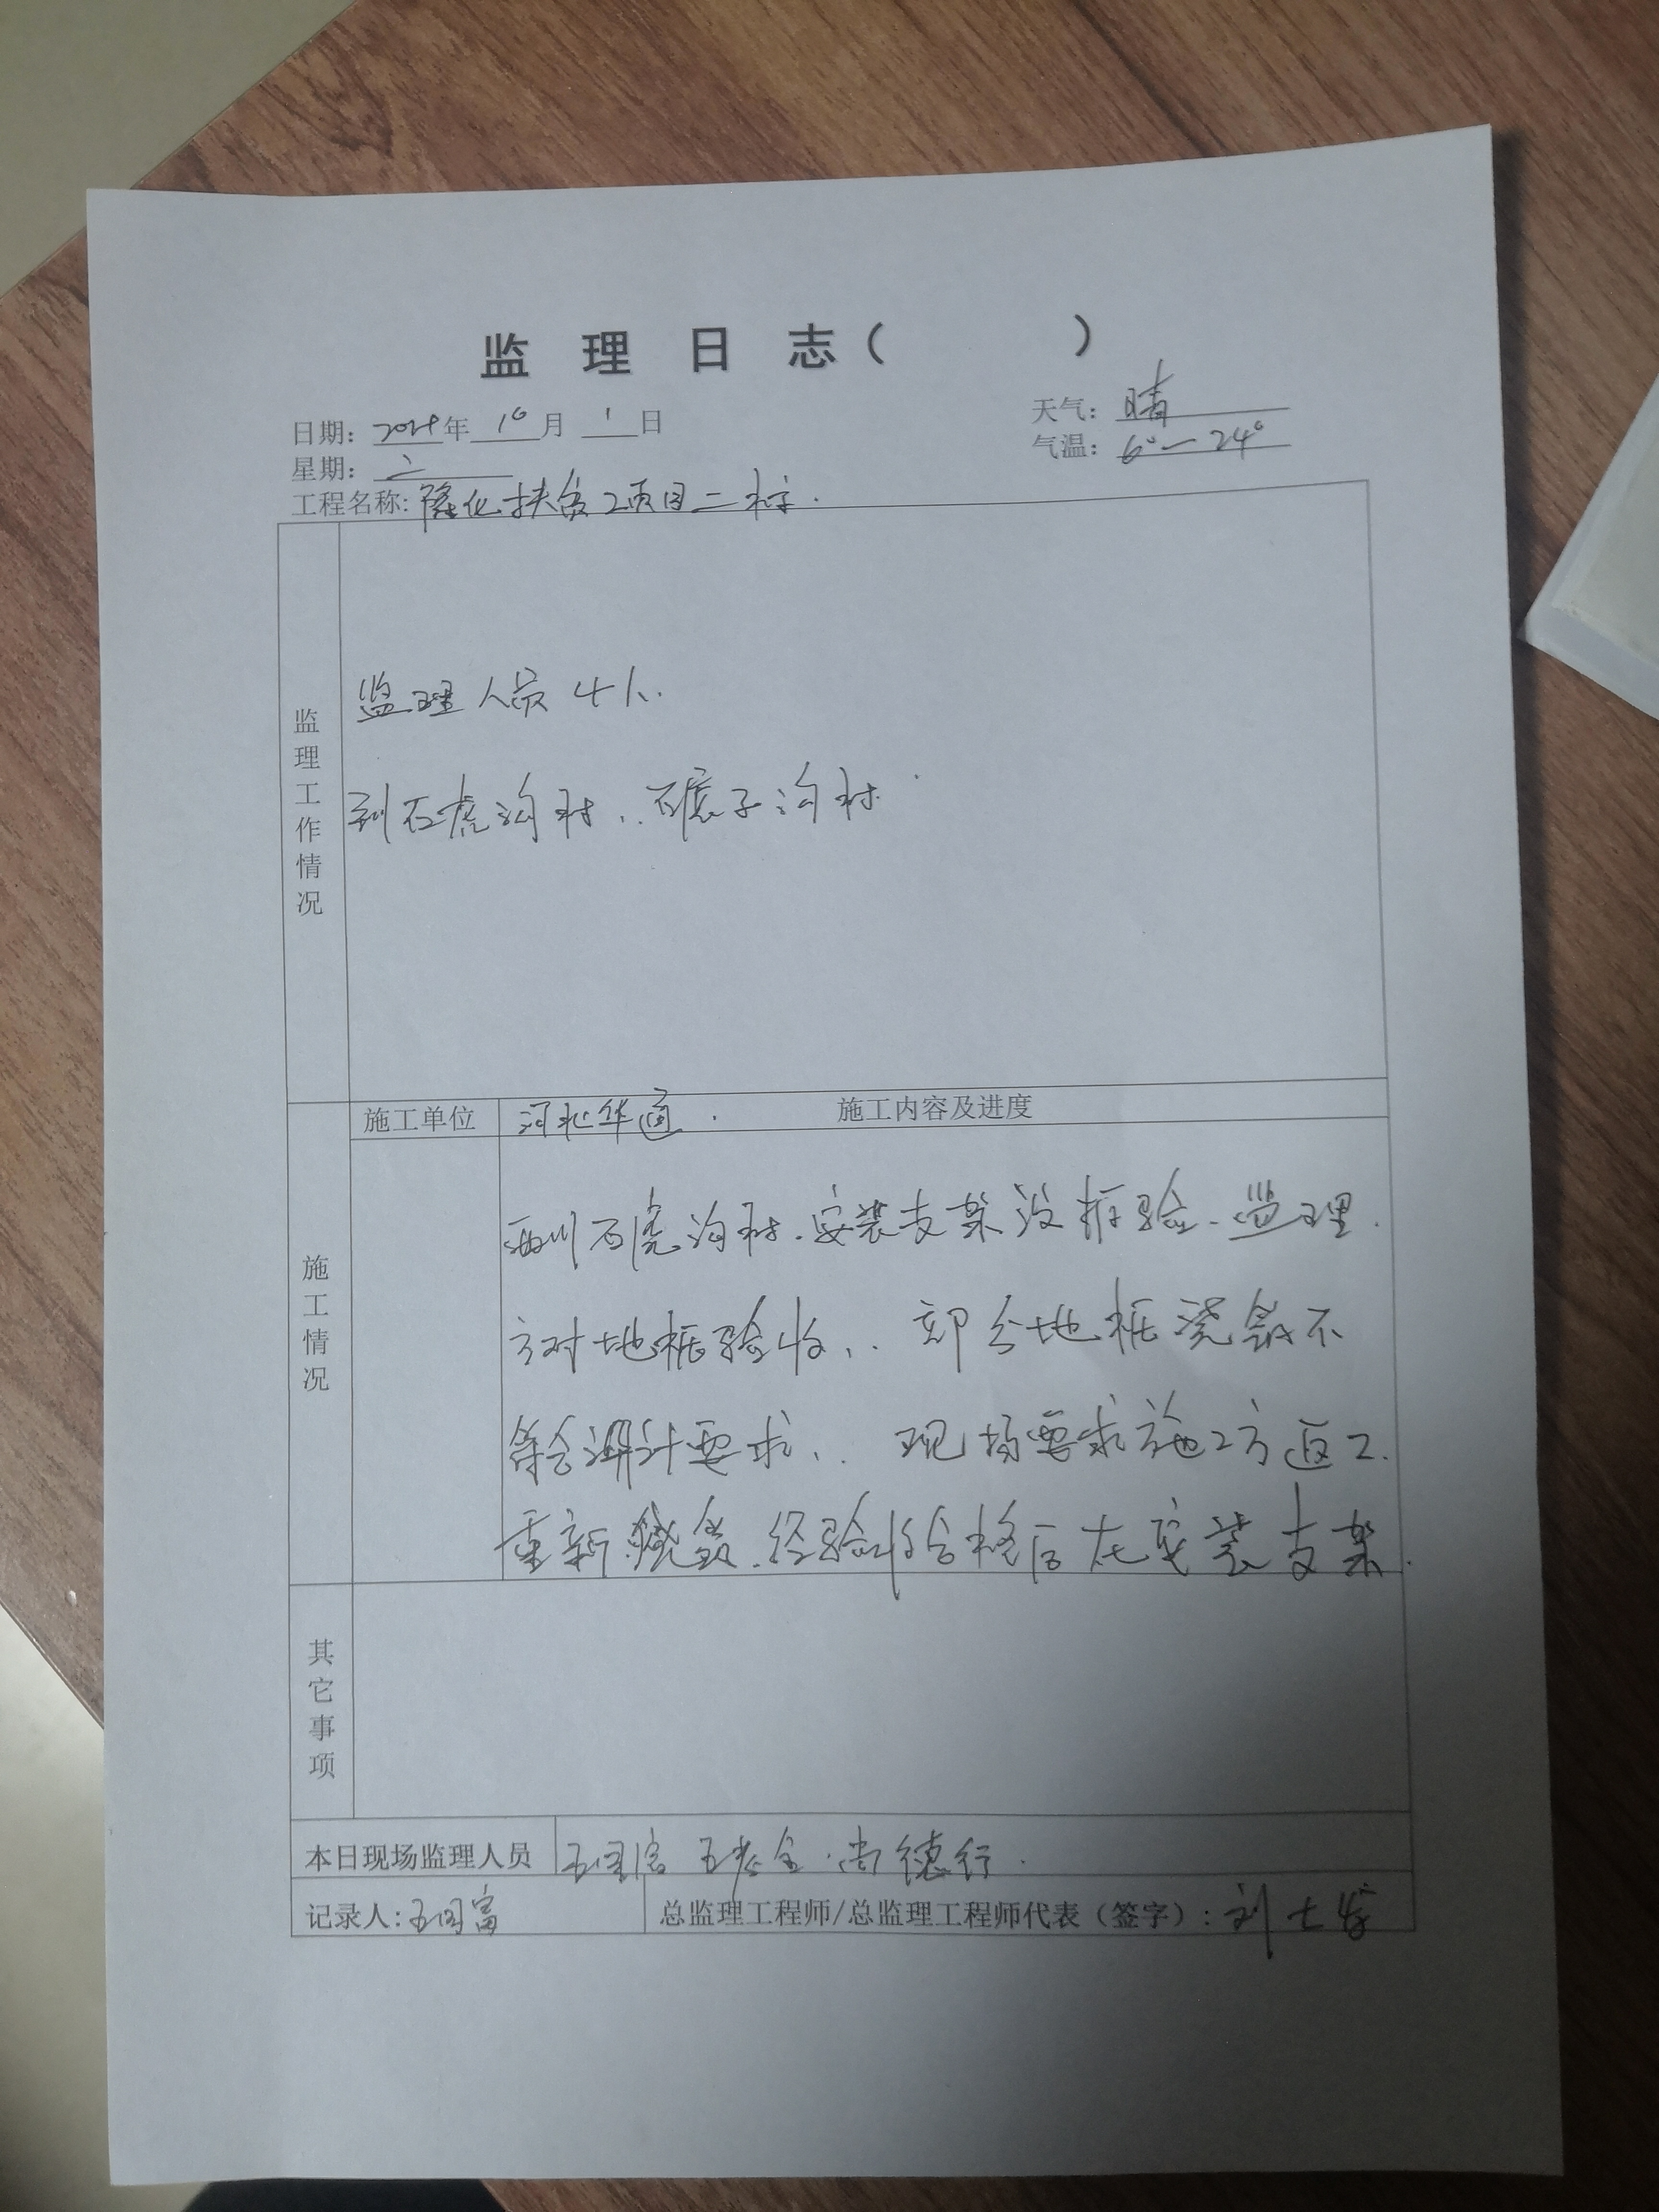 监理日志（    ）
日期：2024年10月1日 天气：晴
星期：二 气温：6°—24°
工程名称：隆化扶贫工项目二标.
监理工作情况
监理人员4人.
到石虎沟村、碾子沟村
施工单位 河北华通. 施工内容及进度
施工情况
西川石虎沟村.安装支架没报验.监理.
方对地桩验收、部分地桩浇筑不
符合设计要求、现场要求施工方返工.
重新浇筑.经验收合格后在安装支架.
其它事项
本日现场监理人员 尚德行.
记录人：王国富 总监理工程师/总监理工程师代表（签字）：刘